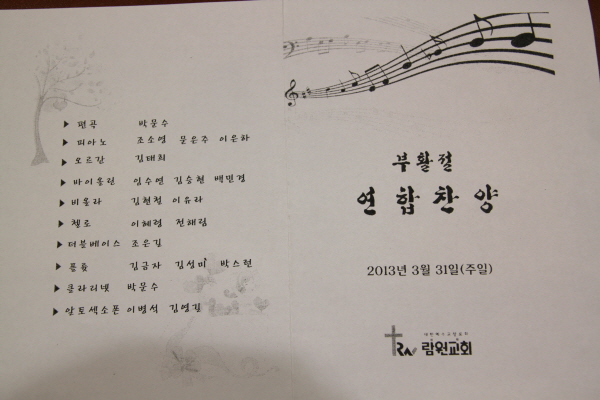 ▶ 편곡 박문수
▶ 피아노 조소영 문은주 이은하
▶ 오르간 김태희
▶ 바이올린 임수연 김승현 백민경
▶ 비올라 김현철 이유라
▶ 첼로 이혜령 전해림
▶ 더블베이스 조은길
▶ 플륫 김금자 김성미 박스런
▶ 클라리넷 박문수
▶ 알토색소폰 이병석 김영길
부활절
연합찬양
2013년 3월 31일(주일)
대한예수교장로회
람원교회